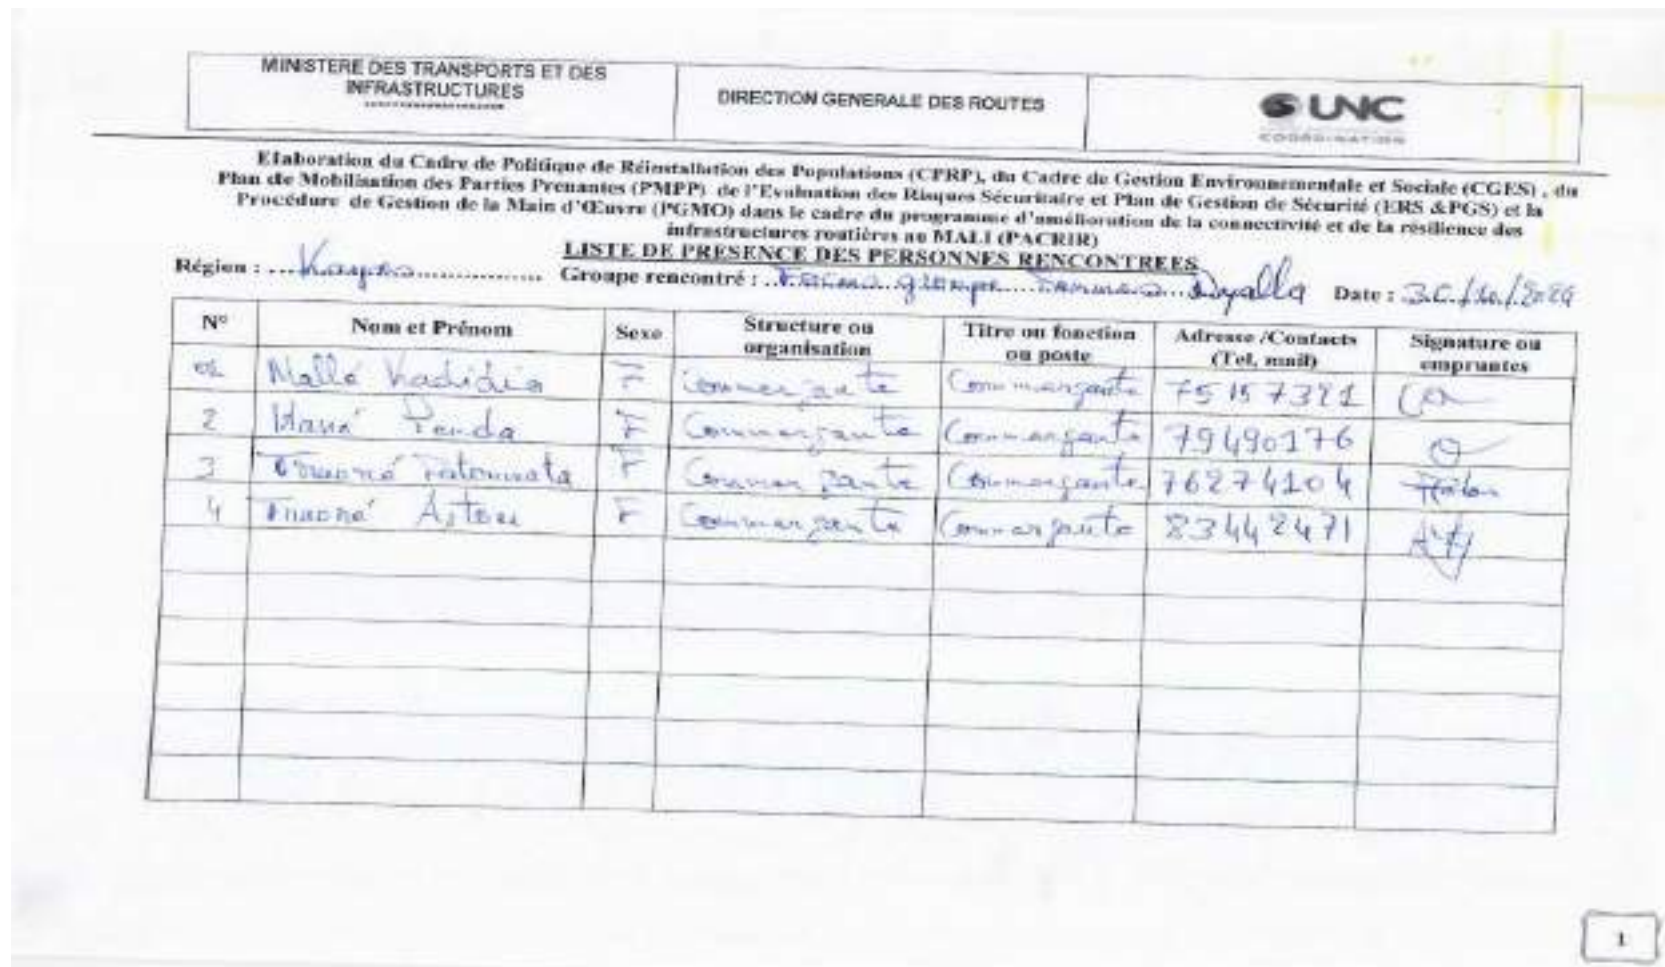 MINISTERE DES TRANSPORTS ET DES
INFRASTRUCTURES
DIRECTION GENERALE DES ROUTES
UNC
COORDINATION
Elaboration du Cadre de Politique de Réinstallation des Populations (CPRP), du Cadre de Gestion Environnementale et Sociale (CGES) , du
Plan de Mobilisation des Parties Prenantes (PMPP) de l'Evaluation des Risques Sécuritaire et Plan de Gestion de Sécurité (ERS &PGS) et la
Procédure de Gestion de la Main d'Œuvre (PGMO) dans le cadre du programme d'amélioration de la connectivité et de la résilience des
infrastructures routières au MALI (PACRIR)
LISTE DE PRESENCE DES PERSONNES RENCONTREES
Région : Kayes Groupe rencontré : Focus groupe Femmes Dyalla Date : 30/10/2024
N° Nom et Prénom Sexe Structure ou organisation Titre ou fonction ou poste Adresse /Contacts (Tel, mail) Signature ou empruntes
Mallé Kadidia F Commerçante Commerçante 75157321
2 Penda F Commerçante Commerçante 79490176
3 Fatoumata F Commerçante Commerçante 76274104
4 Astou F Commerçante Commerçante 83442471
1